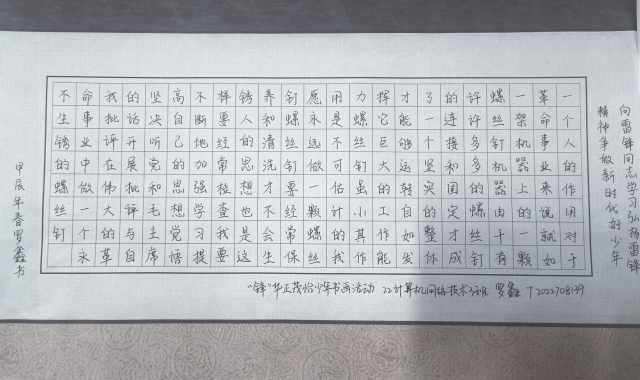 向雷锋同志学习弘扬雷锋
精神争做新时代好少年
一个人的作用对于
革命事业来说就如
一架机器上的一颗
螺丝钉机器由于有
许许多多的螺丝钉
的连接和固定才成
了一个坚实的整体
才能够运转自如发
挥它巨大的工作能
力螺丝钉虽小其作
用是不可估计的我
愿永远做一颗螺丝
钉螺丝钉要经常保
养和清洗才不会生
锈人的思想也是这
样要经常检查我要
不断地加强学习提
高自己的思想党悟
坚决听党和毛主席
的话开展批评与自
我批评在伟大的革
命事业中做一个永
不生锈的螺丝钉
甲辰年春罗鑫书
“锋”华正茂恰少年书画活动 22计算机网络技术3班 罗鑫 T2022708139